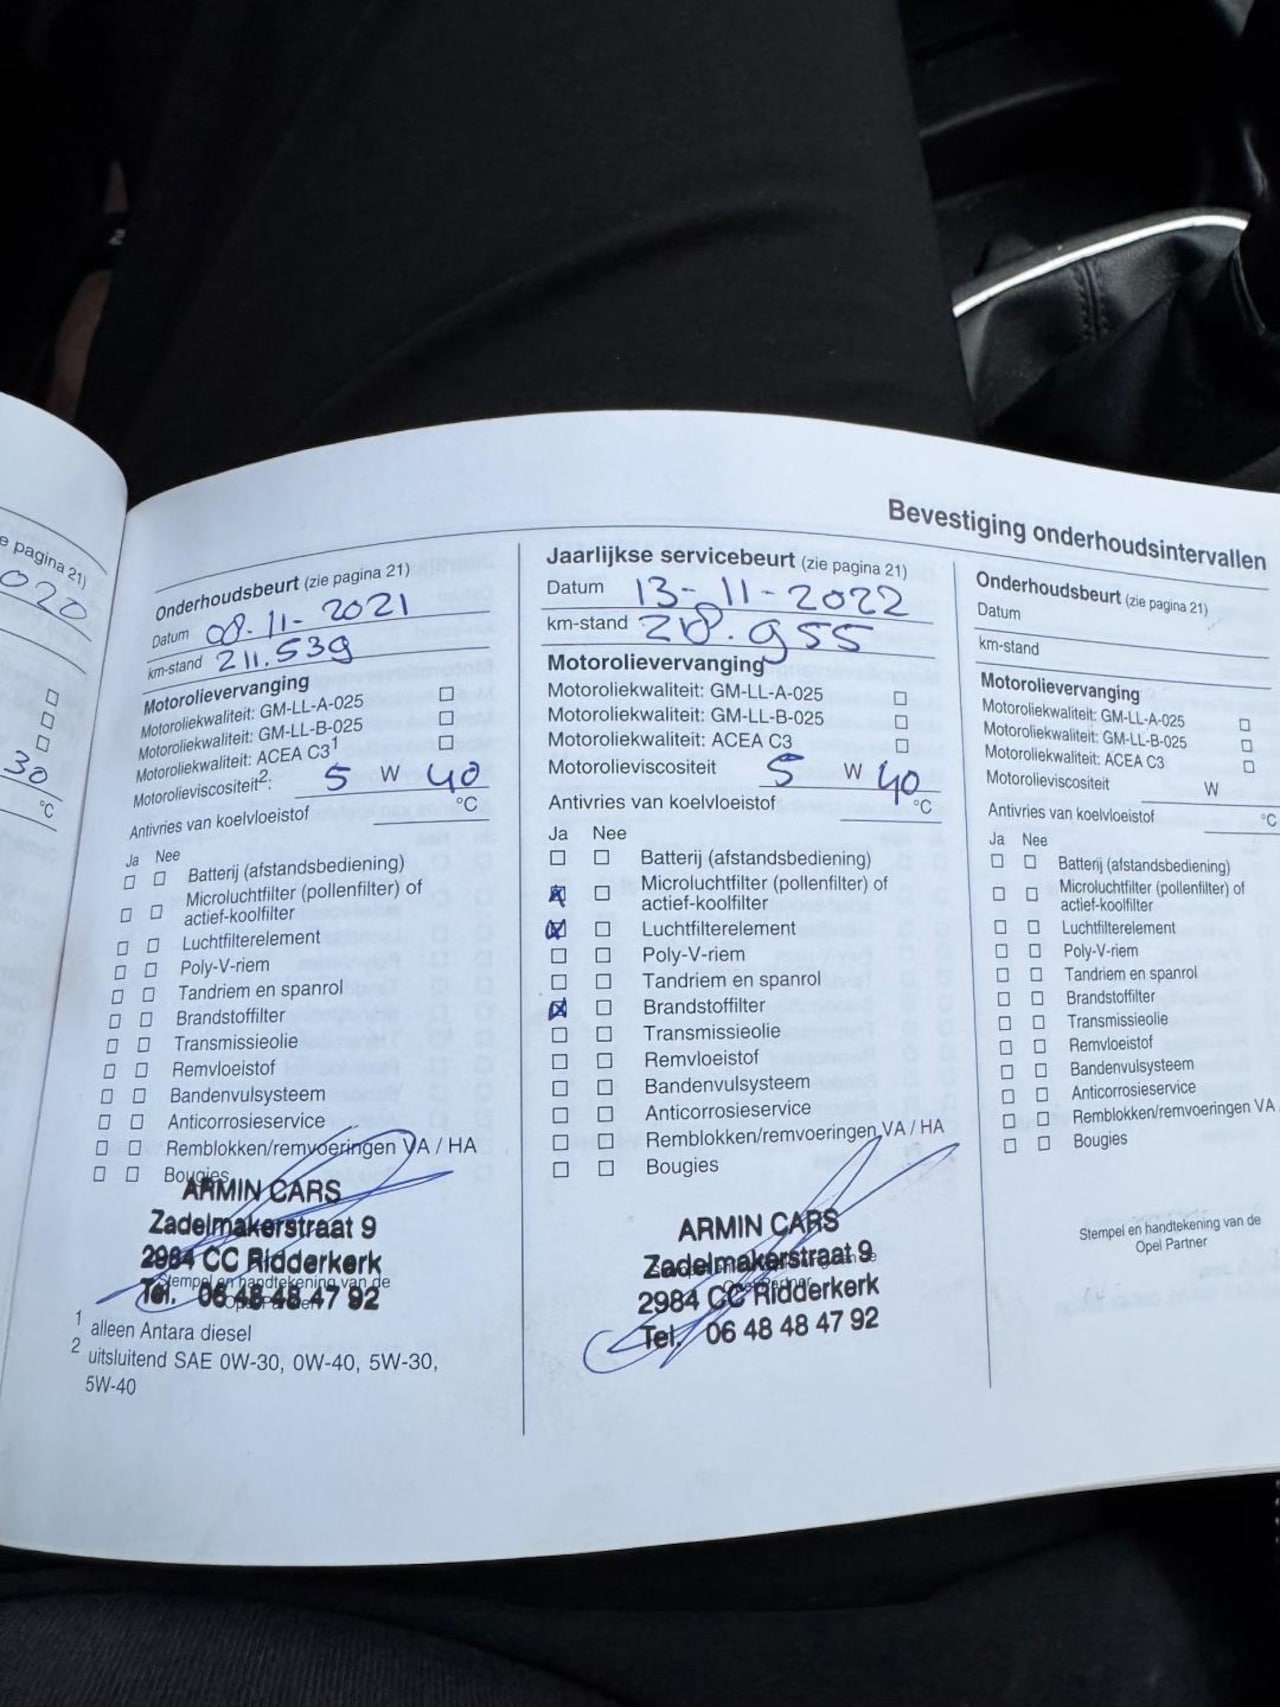 e pagina 21)
020
30
°C
Bevestiging onderhoudsintervallen
Onderhoudsbeurt (zie pagina 21)
Datum 08-11-2021
km-stand 211.539
Motorolievervanging
Motoroliekwaliteit: GM-LL-A-025
Motoroliekwaliteit: GM-LL-B-025
Motoroliekwaliteit: ACEA C3¹
Motorolieviscositeit²: 5 W 40
Antivries van koelvloeistof °C
Ja Nee
Batterij (afstandsbediening)
Microluchtfilter (pollenfilter) of
actief-koolfilter
Luchtfilterelement
Poly-V-riem
Tandriem en spanrol
Brandstoffilter
Transmissieolie
Remvloeistof
Bandenvulsysteem
Anticorrosieservice
Remblokken/remvoeringen VA / HA
Bougies
ARMIN CARS
Zadelmakerstraat 9
2984 CC Ridderkerk
Stempel en handtekening van de
Tel. 06 48 48 47 92
Opel Partner
1 alleen Antara diesel
2 uitsluitend SAE 0W-30, 0W-40, 5W-30,
5W-40
Jaarlijkse servicebeurt (zie pagina 21)
Datum 13-11-2022
km-stand 218.955
Motorolievervanging
Motoroliekwaliteit: GM-LL-A-025
Motoroliekwaliteit: GM-LL-B-025
Motoroliekwaliteit: ACEA C3
Motorolieviscositeit 5 W 40
Antivries van koelvloeistof °C
Ja Nee
Batterij (afstandsbediening)
Microluchtfilter (pollenfilter) of
actief-koolfilter
Luchtfilterelement
Poly-V-riem
Tandriem en spanrol
Brandstoffilter
Transmissieolie
Remvloeistof
Bandenvulsysteem
Anticorrosieservice
Remblokken/remvoeringen VA / HA
Bougies
ARMIN CARS
Zadelmakerstraat 9
2984 CC Ridderkerk
Tel. 06 48 48 47 92
Onderhoudsbeurt (zie pagina 21)
Datum
km-stand
Motorolievervanging
Motoroliekwaliteit: GM-LL-A-025
Motoroliekwaliteit: GM-LL-B-025
Motoroliekwaliteit: ACEA C3
Motorolieviscositeit W
Antivries van koelvloeistof °C
Ja Nee
Batterij (afstandsbediening)
Microluchtfilter (pollenfilter) of
actief-koolfilter
Luchtfilterelement
Poly-V-riem
Tandriem en spanrol
Brandstoffilter
Transmissieolie
Remvloeistof
Bandenvulsysteem
Anticorrosieservice
Remblokken/remvoeringen VA
Bougies
Stempel en handtekening van de
Opel Partner